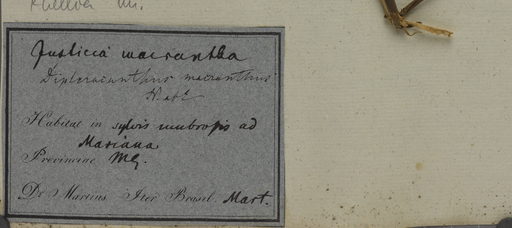 Justicia macrantha
Dipteracanthus macranthus
N. ab E
Habitat in sylvis umbrosis ad
Mariana
Provinciae MG.
Dr Martius Iter Brasil. Mart.